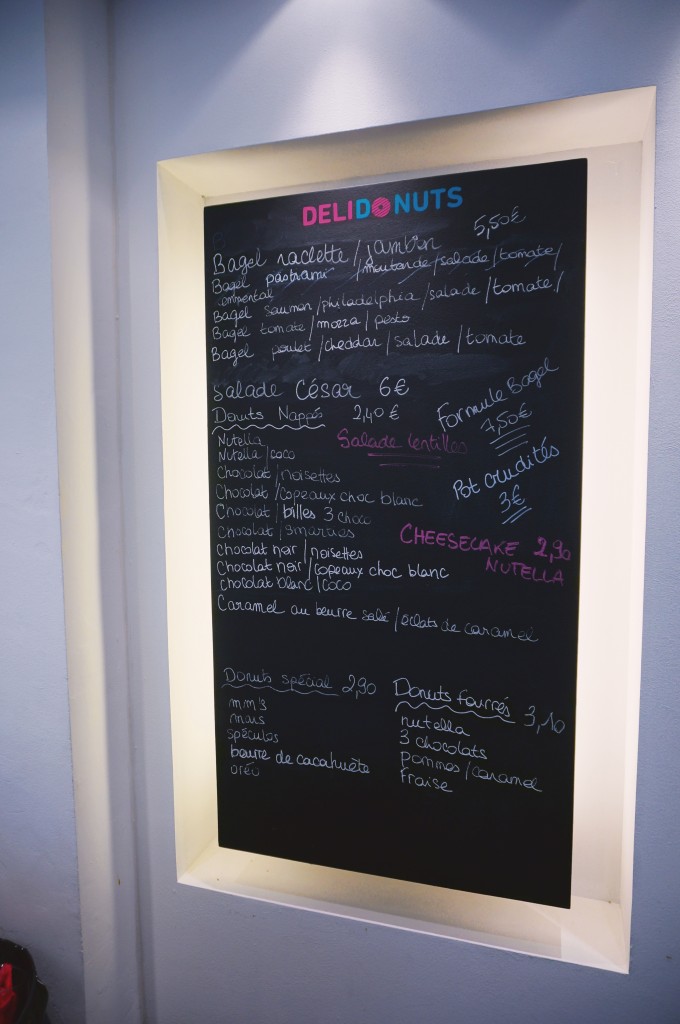 DELIDONUTS
5,50€
Bagel raclette / jambon
Bagel pastrami /moutarde/salade/tomate/
emmental
Bagel saumon/philadelphia/salade/tomate/
Bagel tomate/mozza/pesto
Bagel poulet/cheddar/salade/tomate
Salade César 6€
Formule Bagel
7,50€
Donuts Nappés 2,40€
Salade lentilles
Pot crudités
3€
Nutella
Nutella/coco
Chocolat/noisettes
Chocolat/copeaux choc blanc
Chocolat/billes 3 choco
Chocolat/smarties
CHEESECAKE 2,90
NUTELLA
chocolat noir/noisettes
Chocolat noir/copeaux choc blanc
chocolat blanc/coco
Caramel au beurre salé/éclats de caramel
Donuts spécial 2,90
mm's
spéculos
beurre de cacahuète
oréo
Donuts fourrés 3,10
nutella
3 chocolats
Pommes/caramel
Fraise